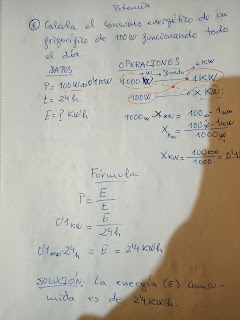 Potencia
⑥ Calcula el consumo energético de un
frigorífico de 100W funcionando todo
el día.
DATOS
P = 100W = 0'1KW
t = 24h
E = ? KWh
OPERACIONES
1000W Directa 1KW
100W X KW
1000W · X KW = 100W · 1KW
X KW = 100W · 1KW / 1000W
X KW = 100KW / 1000 = 0'1
Fórmula
P = E / t
0'1KW = E / 24h
0'1KW · 24h = E = 2'4KWh
SOLUCIÓN: La energía (E) consu-
mida es de 2'4KWh.